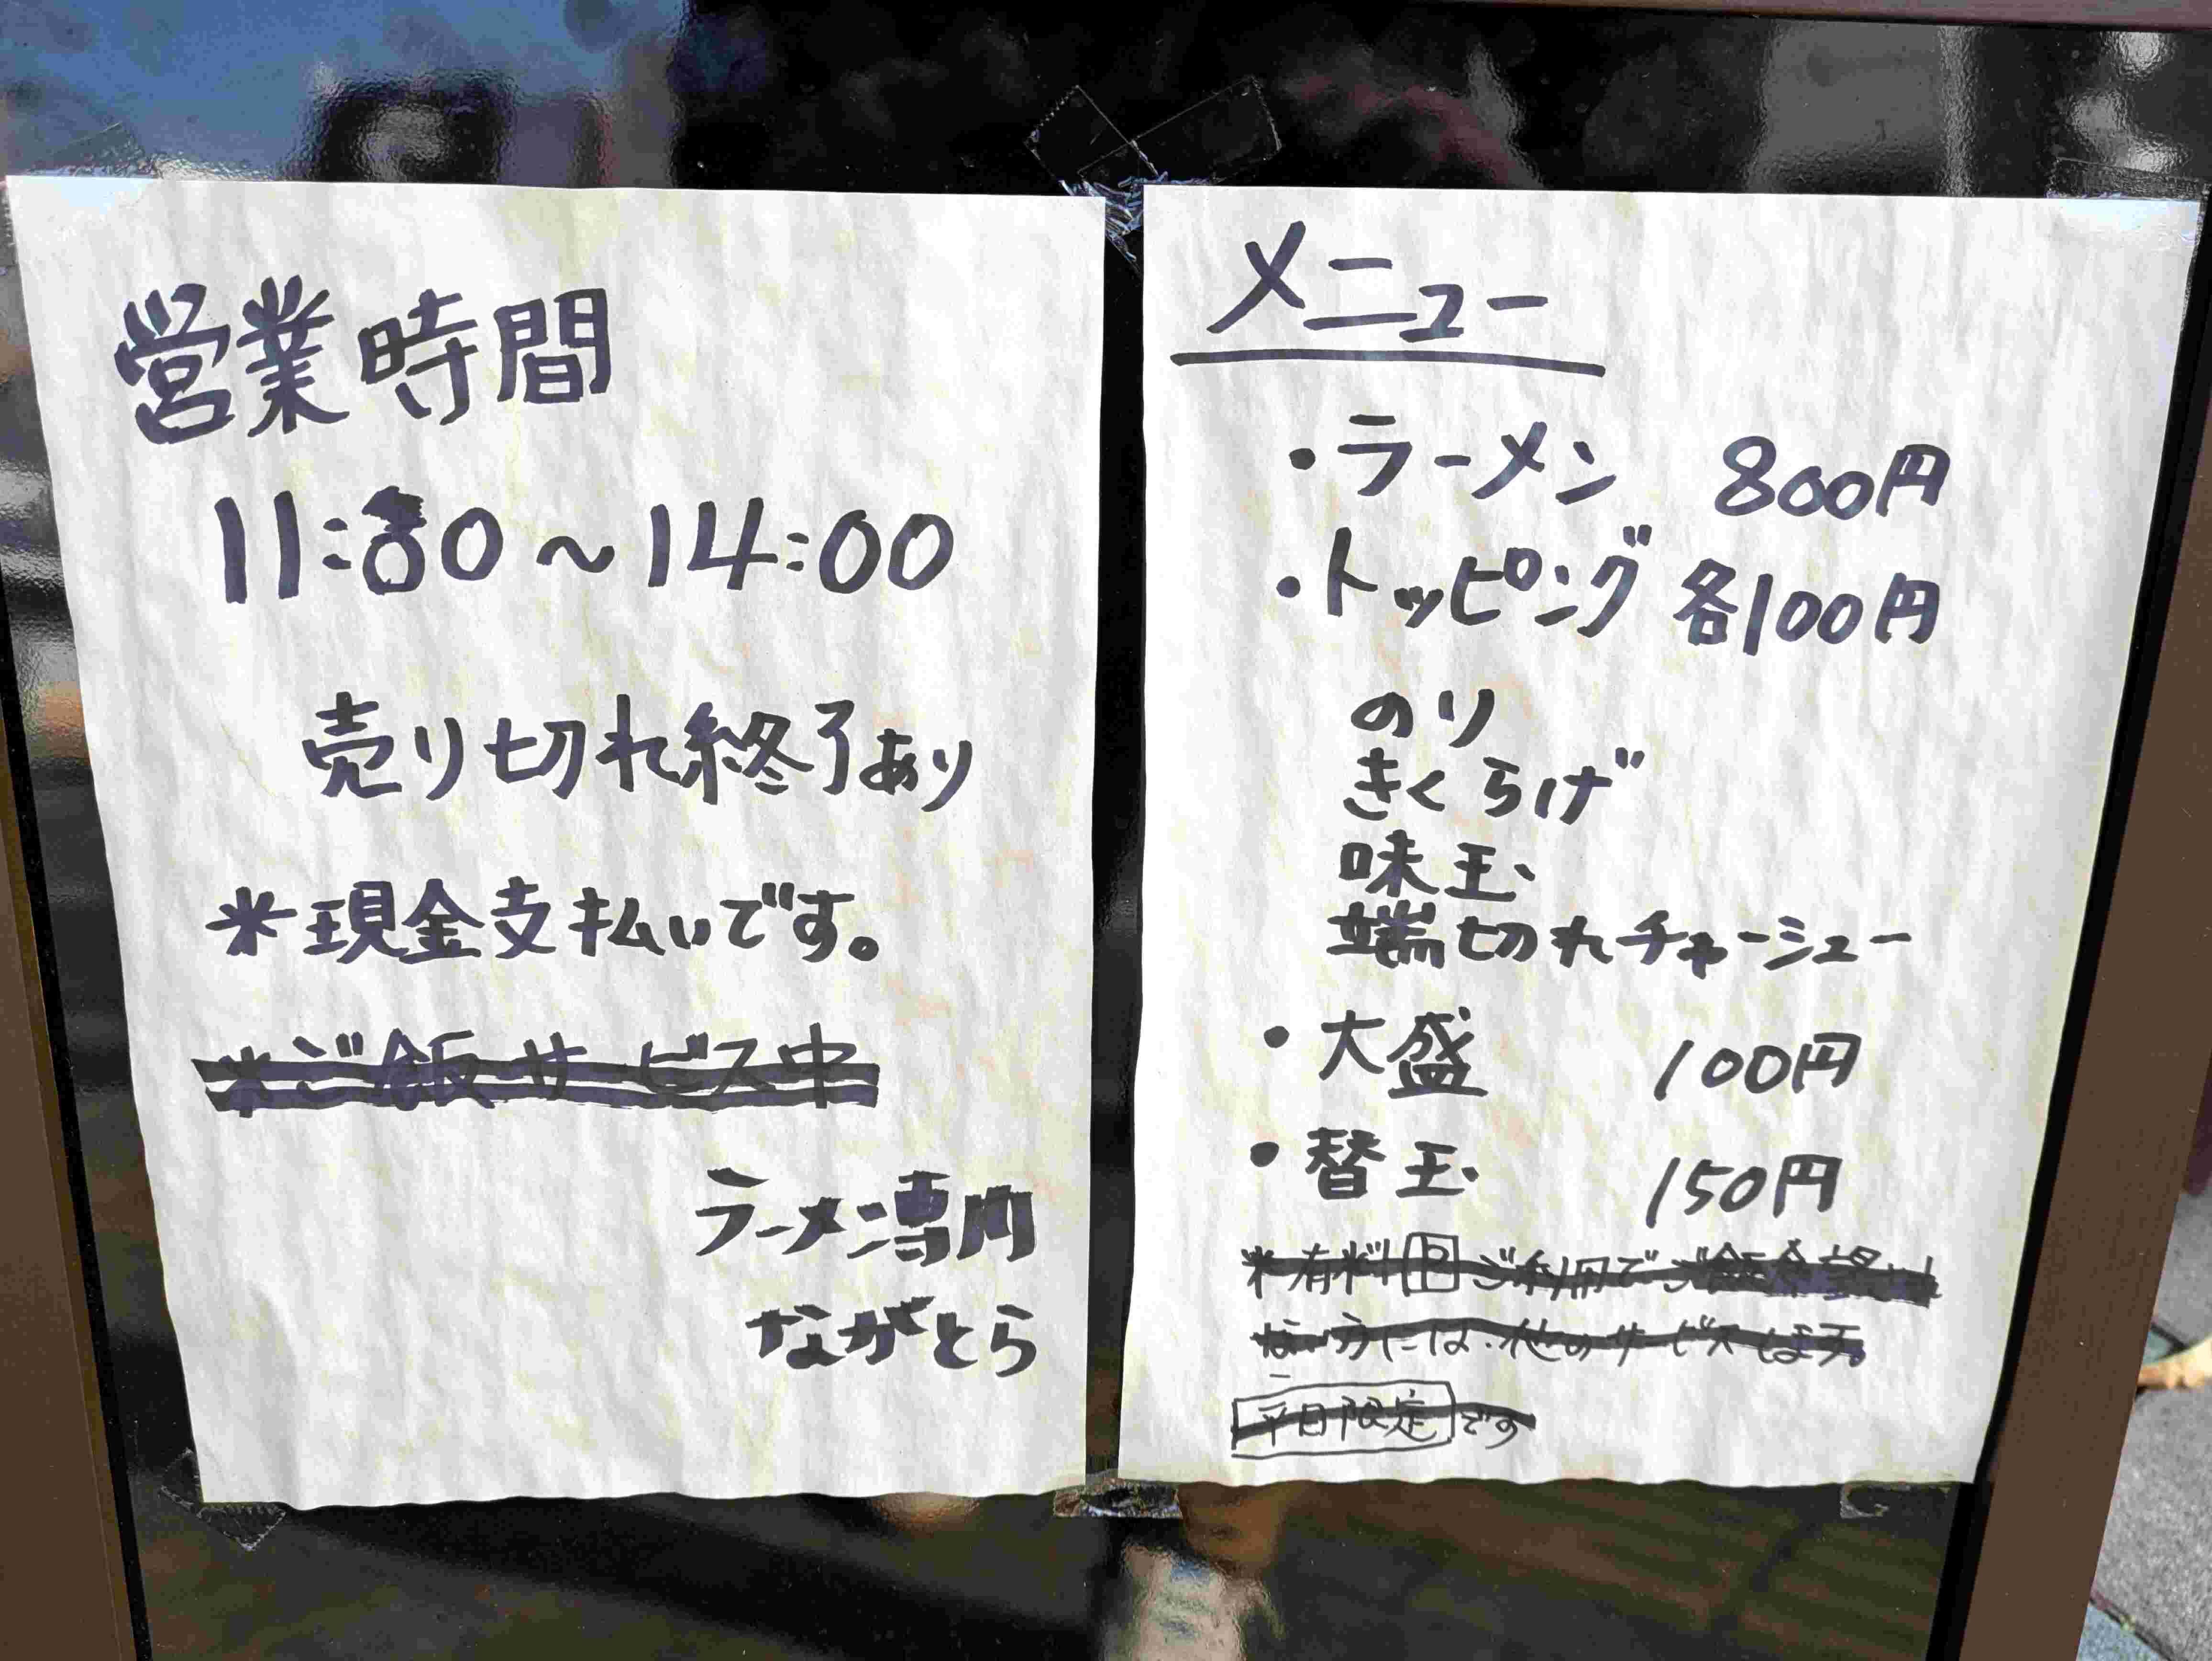 営業時間
11:00～14:00
売り切れ終了あり
※現金支払いです。
※ご飯サービス中
ラーメン専門
ながとら
メニュー
・ラーメン 800円
・トッピング 各100円
のり
きくらげ
味玉
端切れチャーシュー
・大盛 100円
・替玉 150円
※有料Pご利用でご飯希望し
ない方には、他のサービス
平日限定です